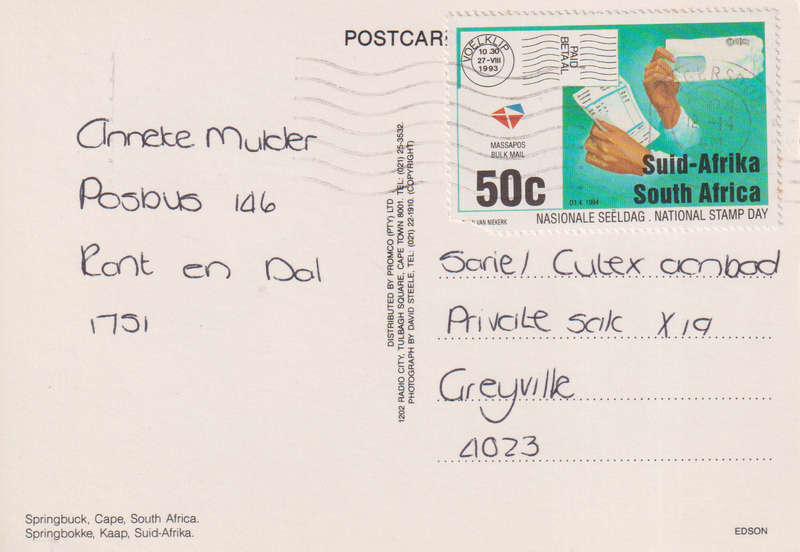 POSTCAR
VOELKLIP
10.30
27-VIII
1993
PAID
BETAAL
MASSAPOS
BULK MAIL
50c
01.4.1994
Suid-Afrika
South Africa
VAN NIEKERK
NASIONALE SEËLDAG . NATIONAL STAMP DAY
Anneke Mulder
Posbus 146
Rant en Dal
1751
DISTRIBUTED BY PROMCO (PTY) LTD
1202 RADIO CITY, TULBAGH SQUARE, CAPE TOWN 8001. TEL: (021) 25-3532.
PHOTOGRAPH BY DAVID STEELE, TEL: (021) 22-1910. (COPYRIGHT)
Sariel Culex aanbod
Private sak X19
Greyville
4023
Springbuck, Cape, South Africa.
Springbokke, Kaap, Suid-Afrika.
EDSON